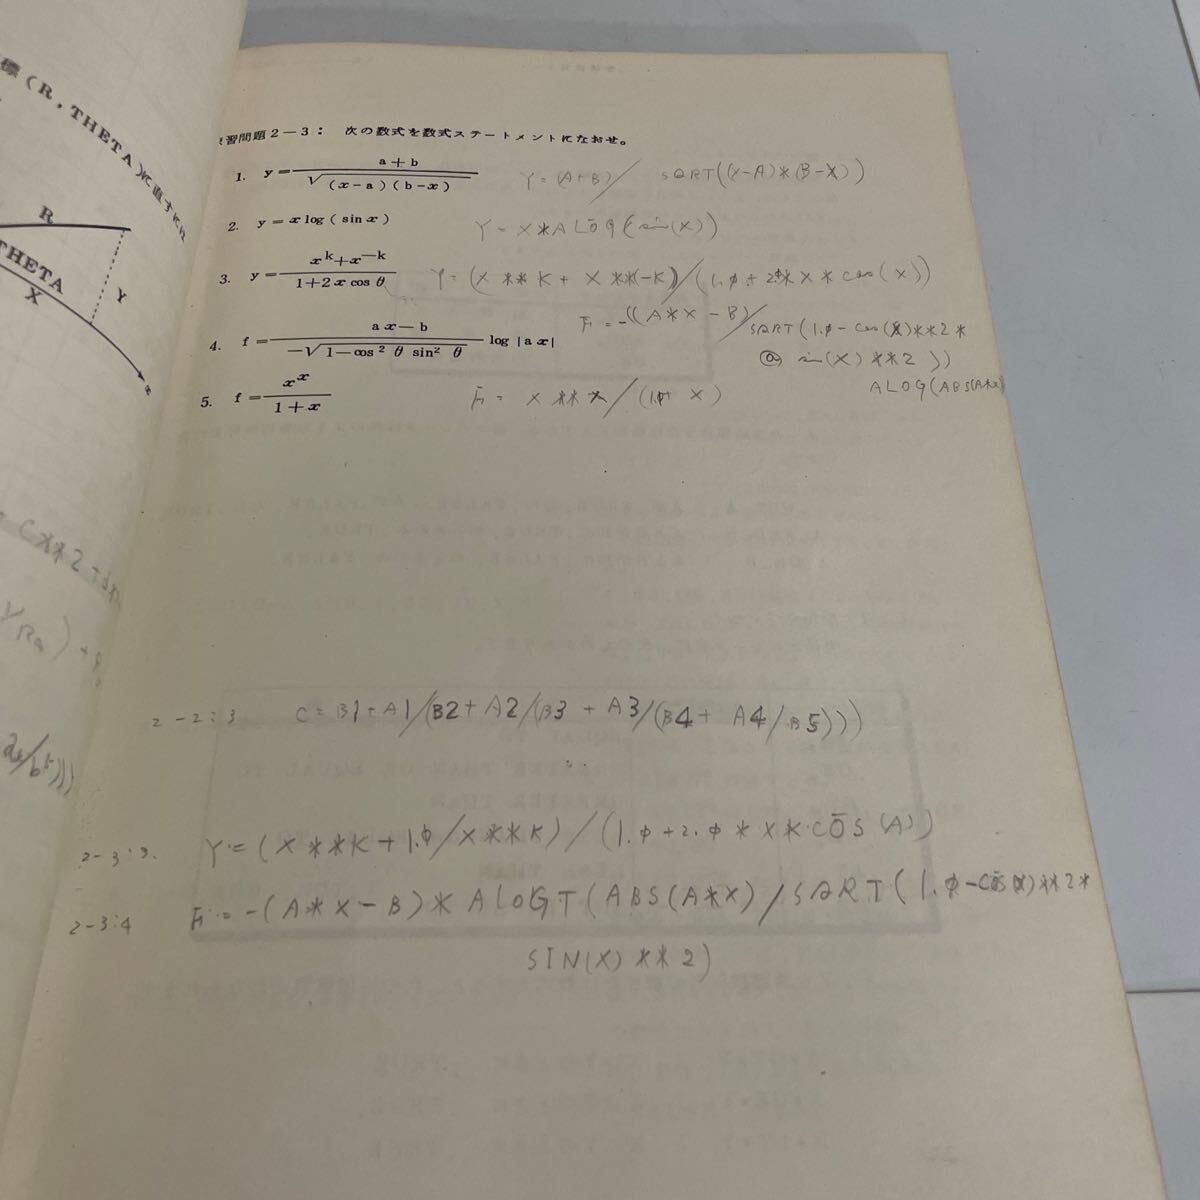 標(R,THETA)に直すには
R
THETA
X
Y
x
C X**2+
習問題2-3: 次の数式を数式ステートメントになおせ。
1. y=a+b/√(x-a)(b-x) Y=(A+B)/ SQRT((X-A)*(B-X))
2. y=xlog(sinx) Y=X*ALOG(sin(X))
3. y=x^k+x^-k/1+2xcosθ Y=(X**K+X**(-K))/(1.0+2.0*X*cos(X))
4. f=ax-b/-√1-cos²θ sin²θ log|ax| F=-((A*X-B)/SQRT(1.0-cos(X)**2*
sin(X)**2))
ALOG(ABS(A*X)
5. f=x^x/1+x F=X**X/(1.0+X)
2-2:3 C=B1+A1/(B2+A2/(B3+A3/(B4+A4/B5)))
2-3:3. Y=(X**K+1.0/X**K)/(1.0+2.0*X*COS(A))
2-3:4 F=-(A*X-B)*ALOGT(ABS(A*X)/SQRT(1.0-COS(X)**2*
SIN(X)**2)